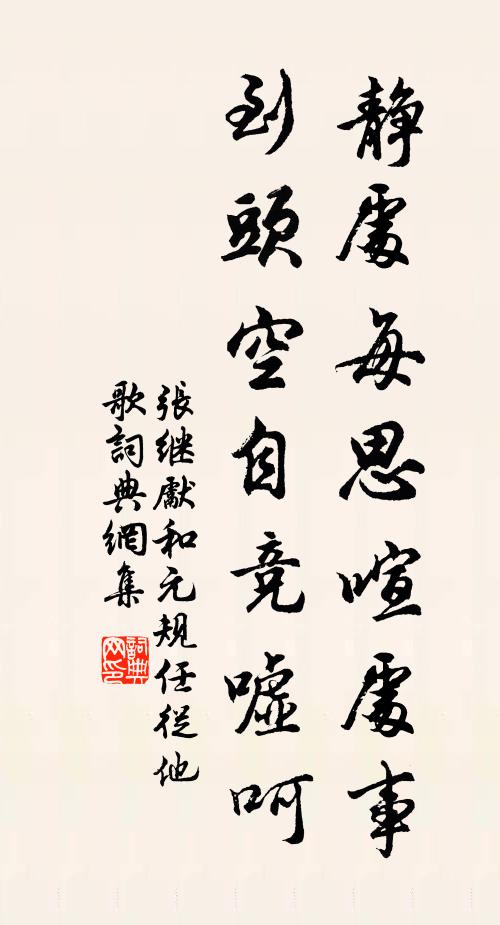 靜處每思喧處事
到頭空自竞噓呵
張继獻和元规任從他
歌詞典網集
詞典网印